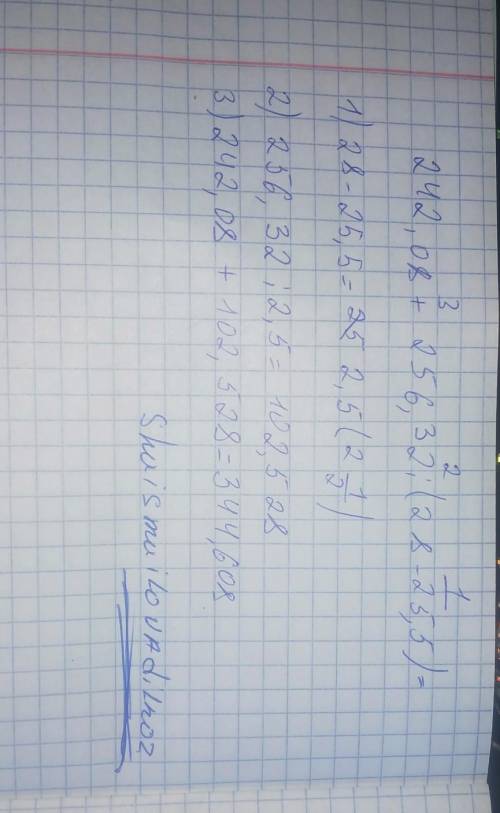 3 2 1
242,08 + 256,32 : (28 - 25,5) =
1) 28 - 25,5 = 2,5 (2 1/2)
2) 256,32 : 2,5 = 102,528
3) 242,08 + 102,528 = 344,608